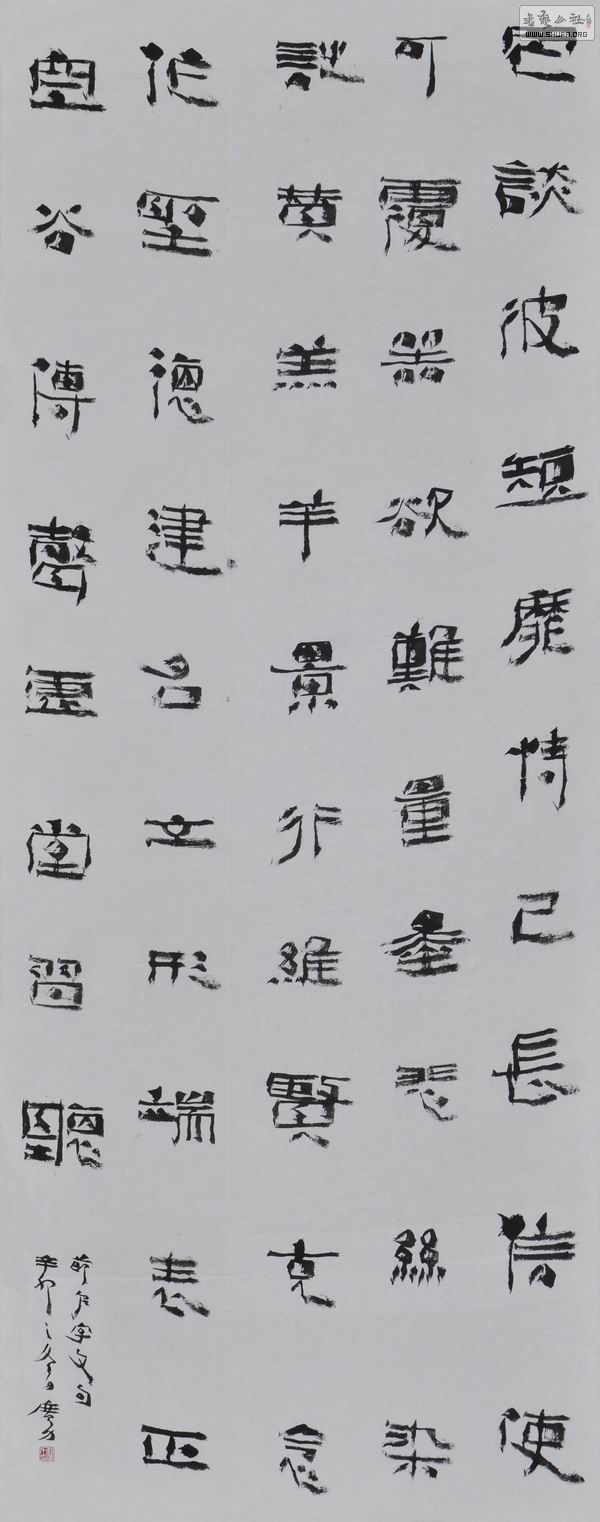 書藝公社
WWW.SHUFA.ORG
罔談彼短靡恃己長信使
可覆器欲難量墨悲絲染
詩贊羔羊景行維賢克念
作聖德建名立形端表正
空谷傳聲虛堂習聽
節千字文句
辛卯之冬日